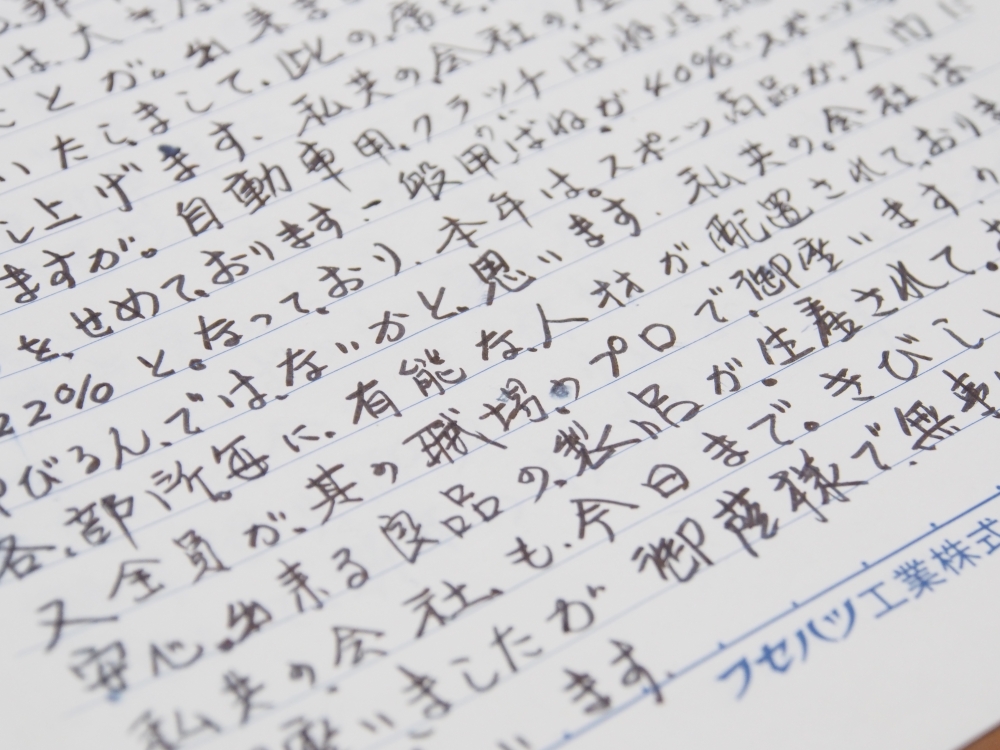 は、大き
ことが。出来ま
いたしまして、此の、席を、
し上げます、私共の会社の、
ますが。自動車用、クラッチばね、は
を、せめて、おります、一般用ばねが40%で、スポ
22%と。なって、おり、本年は。スポーツ商品が、大巾に
びるん、では、ないかと、思います、私共の、会社は
各、部所、毎に、有能な、人材が、配置されて、おりま
又全員が、其の職場、のプロで、御座います、
安心、出来る良品の、製品が、生産されて、
私共の、会社、も、今日まで。きびしい
座いましたが御蔭様で、無事
ます
フセハツ工業株式